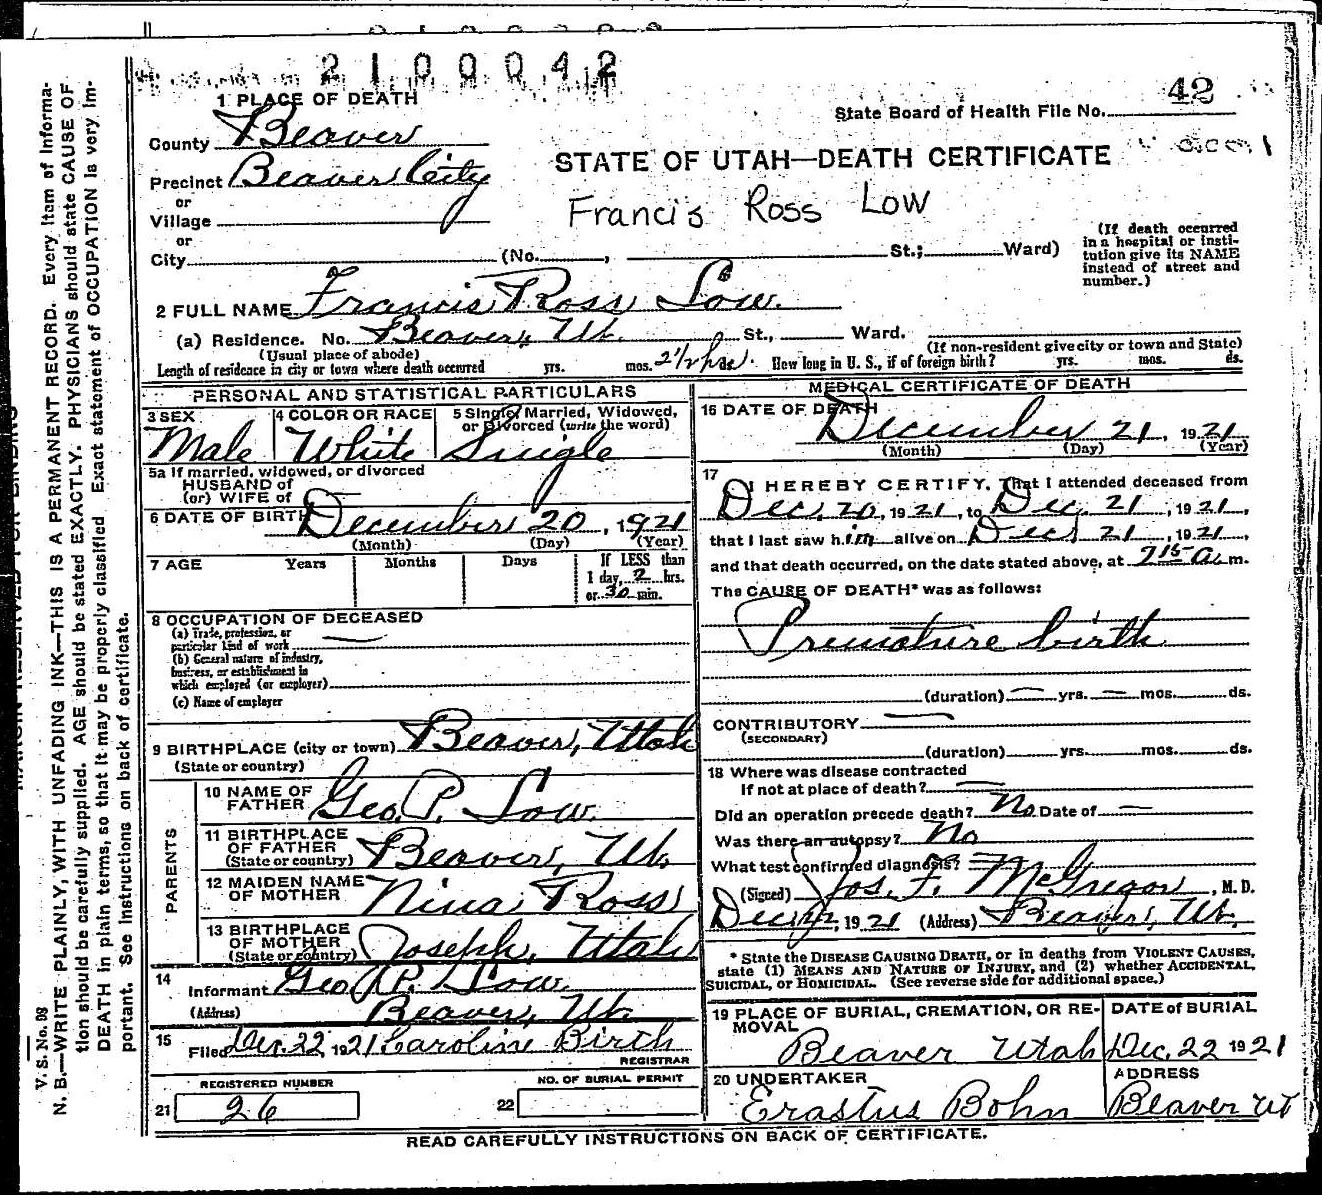 2100042
1 PLACE OF DEATH
State Board of Health File No. 42
County Beaver
STATE OF UTAH—DEATH CERTIFICATE
Precinct Beaver City
or
Village
Francis Ross Low
or
City (No. , St.; Ward)
(If death occurred
in a hospital or insti-
tution give its NAME
instead of street and
number.)
2 FULL NAME Francis Ross Low.
(a) Residence. No. Beaver, Ut. St., Ward.
(Usual place of abode) (If non-resident give city or town and State)
Length of residence in city or town where death occurred yrs. mos. 2½ hrs. How long in U. S., if of foreign birth? yrs. mos. ds.
PERSONAL AND STATISTICAL PARTICULARS
3 SEX Male
4 COLOR OR RACE White
5 Single, Married, Widowed,
or Divorced (write the word)
Single
5a If married, widowed, or divorced
HUSBAND of
(or) WIFE of
6 DATE OF BIRTH December 20, 1921
(Month) (Day) (Year)
7 AGE Years Months Days If LESS than
1 day, 2 hrs.
or 30 min.
8 OCCUPATION OF DECEASED
(a) Trade, profession, or
particular kind of work
(b) General nature of industry,
business, or establishment in
which employed (or employer)
(c) Name of employer
9 BIRTHPLACE (city or town) Beaver, Utah
(State or country)
PARENTS
10 NAME OF
FATHER Geo. P. Low.
11 BIRTHPLACE
OF FATHER
(State or country) Beaver, Ut.
12 MAIDEN NAME
OF MOTHER Nina Ross
13 BIRTHPLACE
OF MOTHER
(State or country) Joseph, Utah
14 Informant Geo P. Low
(Address) Beaver, Ut.
15 Filed Dec. 22 1921 Caroline Birth
REGISTRAR
REGISTERED NUMBER
21 26
NO. OF BURIAL PERMIT
22
MEDICAL CERTIFICATE OF DEATH
16 DATE OF DEATH
December 21, 1921
(Month) (Day) (Year)
17 I HEREBY CERTIFY, That I attended deceased from
Dec. 20, 1921, to Dec. 21, 1921,
that I last saw him alive on Dec 21, 1921,
and that death occurred, on the date stated above, at 7 15 a. m.
The CAUSE OF DEATH* was as follows:
Premature birth
(duration) — yrs. — mos. ds.
CONTRIBUTORY
(SECONDARY)
(duration) yrs. mos. ds.
18 Where was disease contracted
If not at place of death?
Did an operation precede death? No Date of —
Was there an autopsy? No
What test confirmed diagnosis?
(Signed) Jos. F. McGregor, M. D.
Dec, 1921 (Address) Beaver, Ut.
* State the DISEASE CAUSING DEATH, or in deaths from VIOLENT CAUSES,
state (1) MEANS AND NATURE OF INJURY, and (2) whether ACCIDENTAL,
SUICIDAL, or HOMICIDAL. (See reverse side for additional space.)
19 PLACE OF BURIAL, CREMATION, OR RE-
MOVAL
Beaver Utah
DATE of BURIAL
Dec. 22 1921
20 UNDERTAKER
Erastus Bohn
ADDRESS
Beaver Ut
READ CAREFULLY INSTRUCTIONS ON BACK OF CERTIFICATE.
V. S. No. 98
N. B.—WRITE PLAINLY, WITH UNFADING INK—THIS IS A PERMANENT RECORD. Every item of informa-
tion should be carefully supplied. AGE should be stated EXACTLY. PHYSICIANS should state CAUSE OF
DEATH in plain terms, so that it may be properly classified. Exact statement of OCCUPATION is very im-
portant. See instructions on back of certificate.